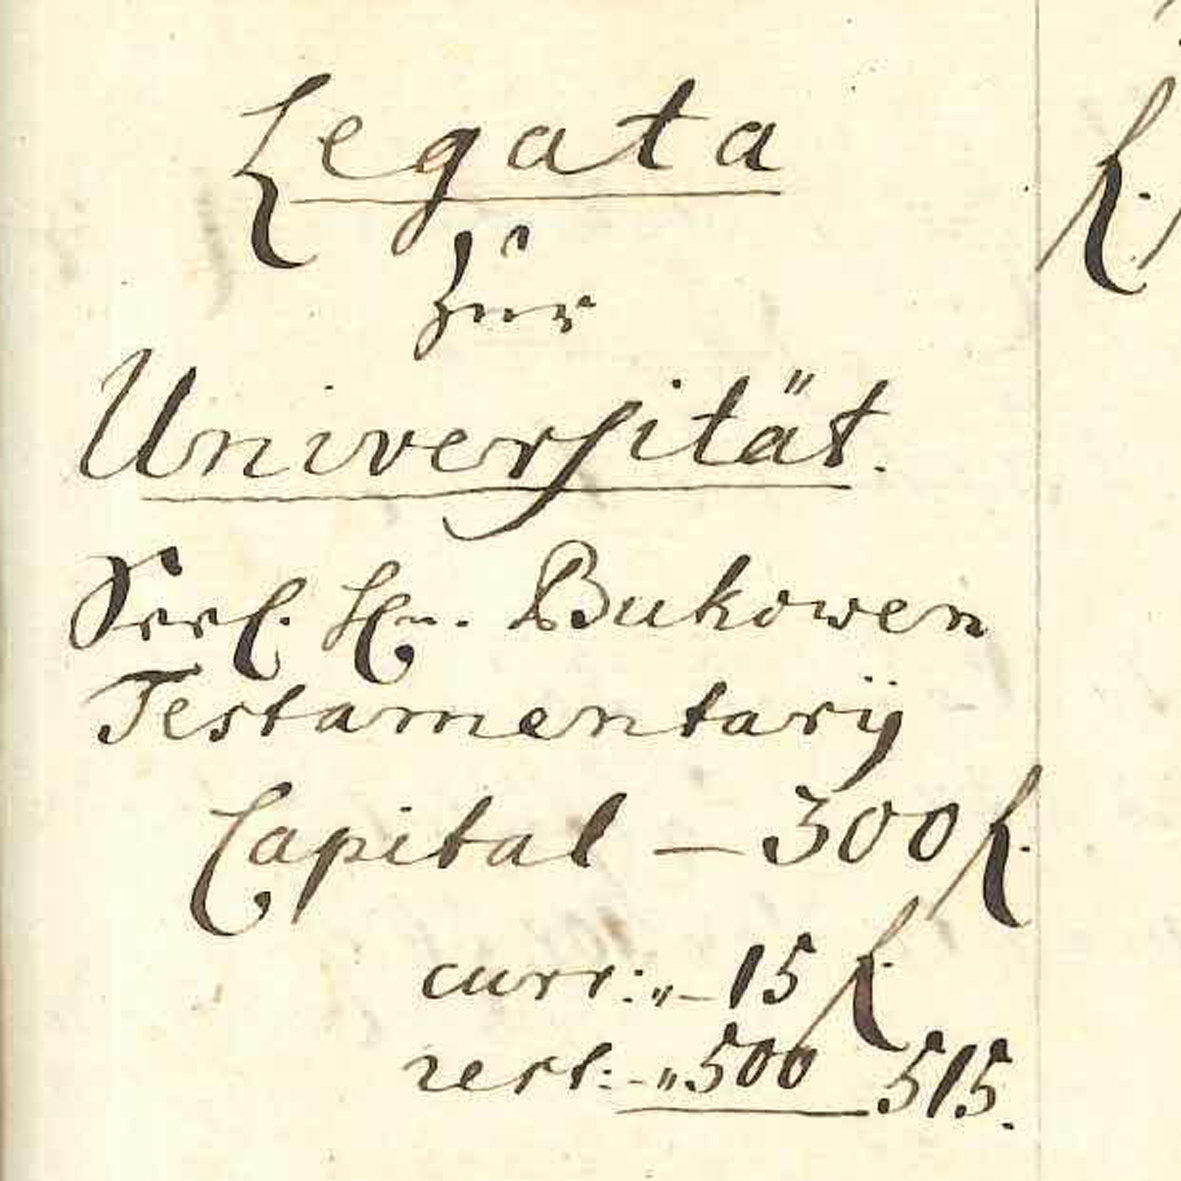 Legata
zur
Universität.
Seel. Hn. Bukowen
Testamentarij
Capital — 300 f.
curr: „ – 15 f.
rest: – „ 500 515.